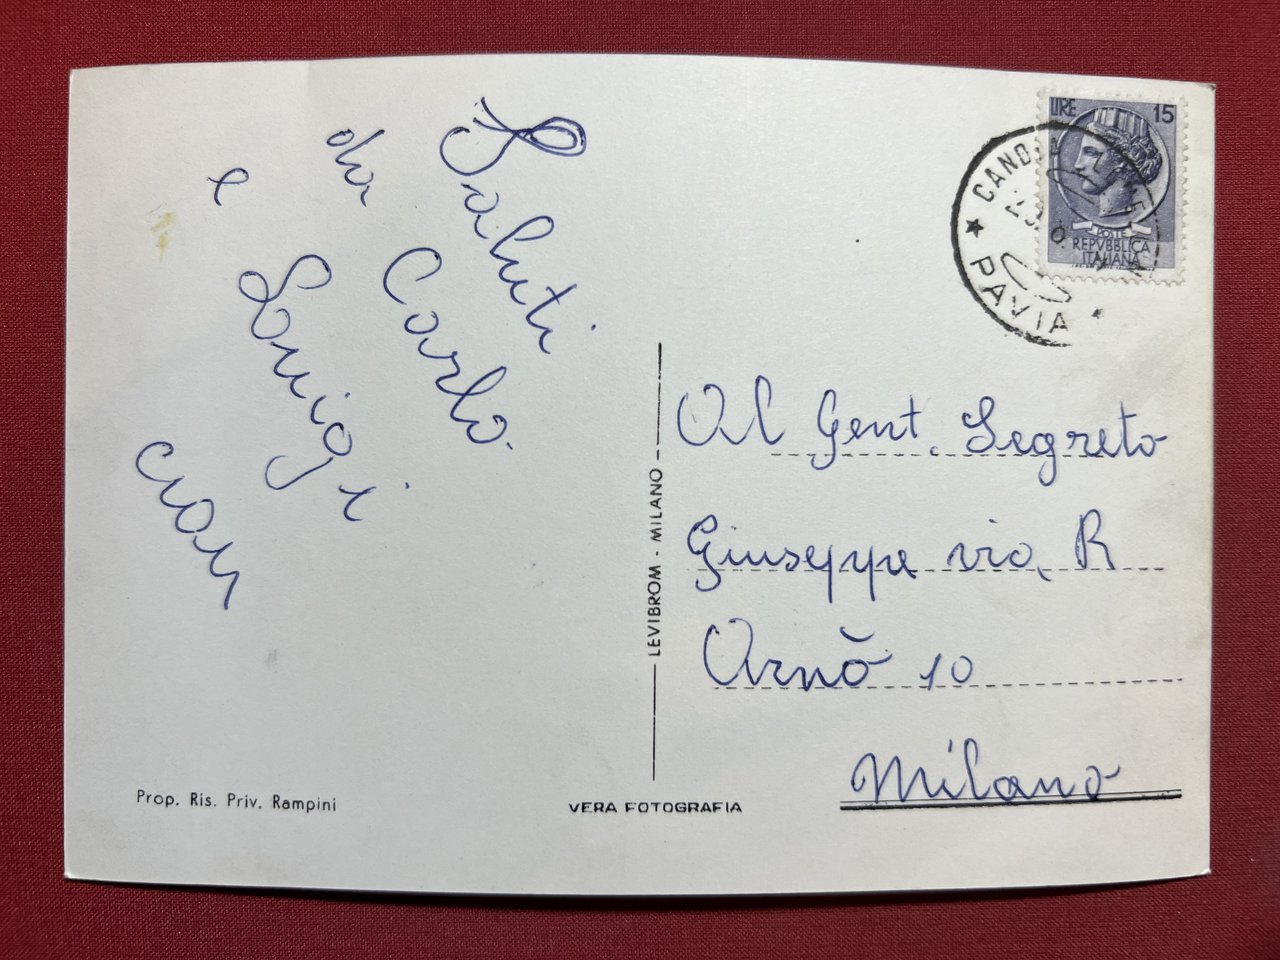 Saluti
da Carlo
e Luigi
ciao
LIRE 15
POSTE
REPVBBLICA
ITALIANA
PAVIA
LEVIBROM - MILANO
Al Gent. Segreto
Giuseppe via R
Arnò 10
Milano
Prop. Ris. Priv. Rampini
VERA FOTOGRAFIA